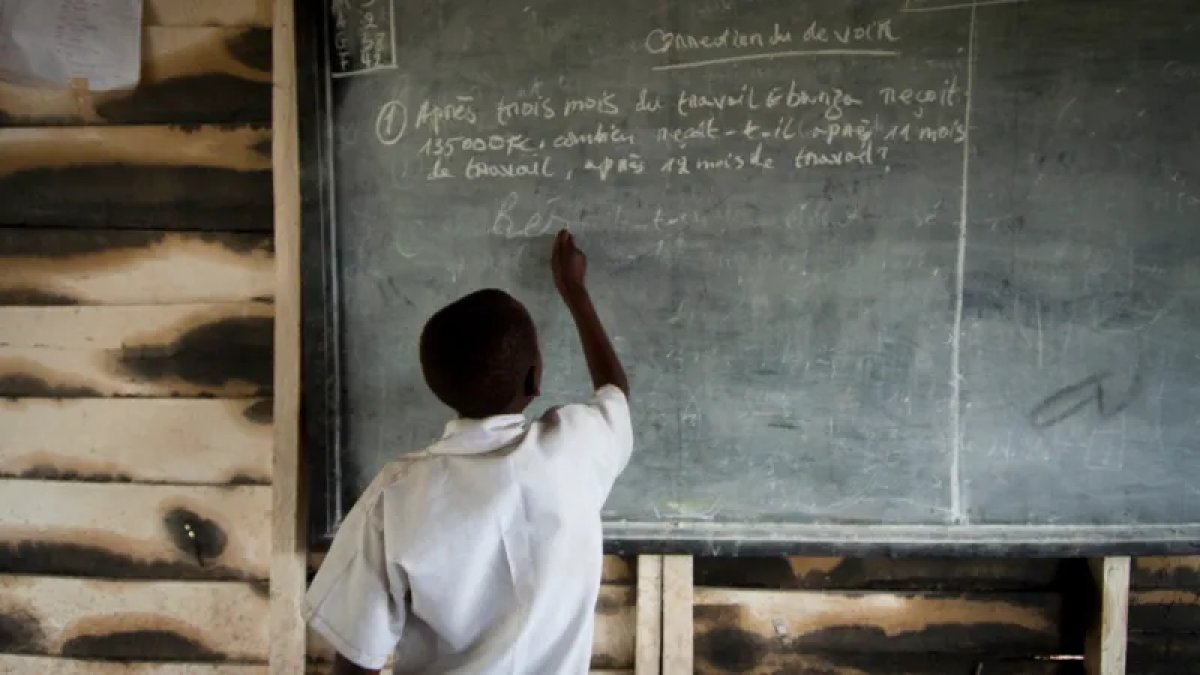 Correction du devoir
① Après trois mois du travail Ebanza reçoit
135000FC, combien reçoit-t-il après 11 mois
de travail, après 12 mois de travail?
Rés